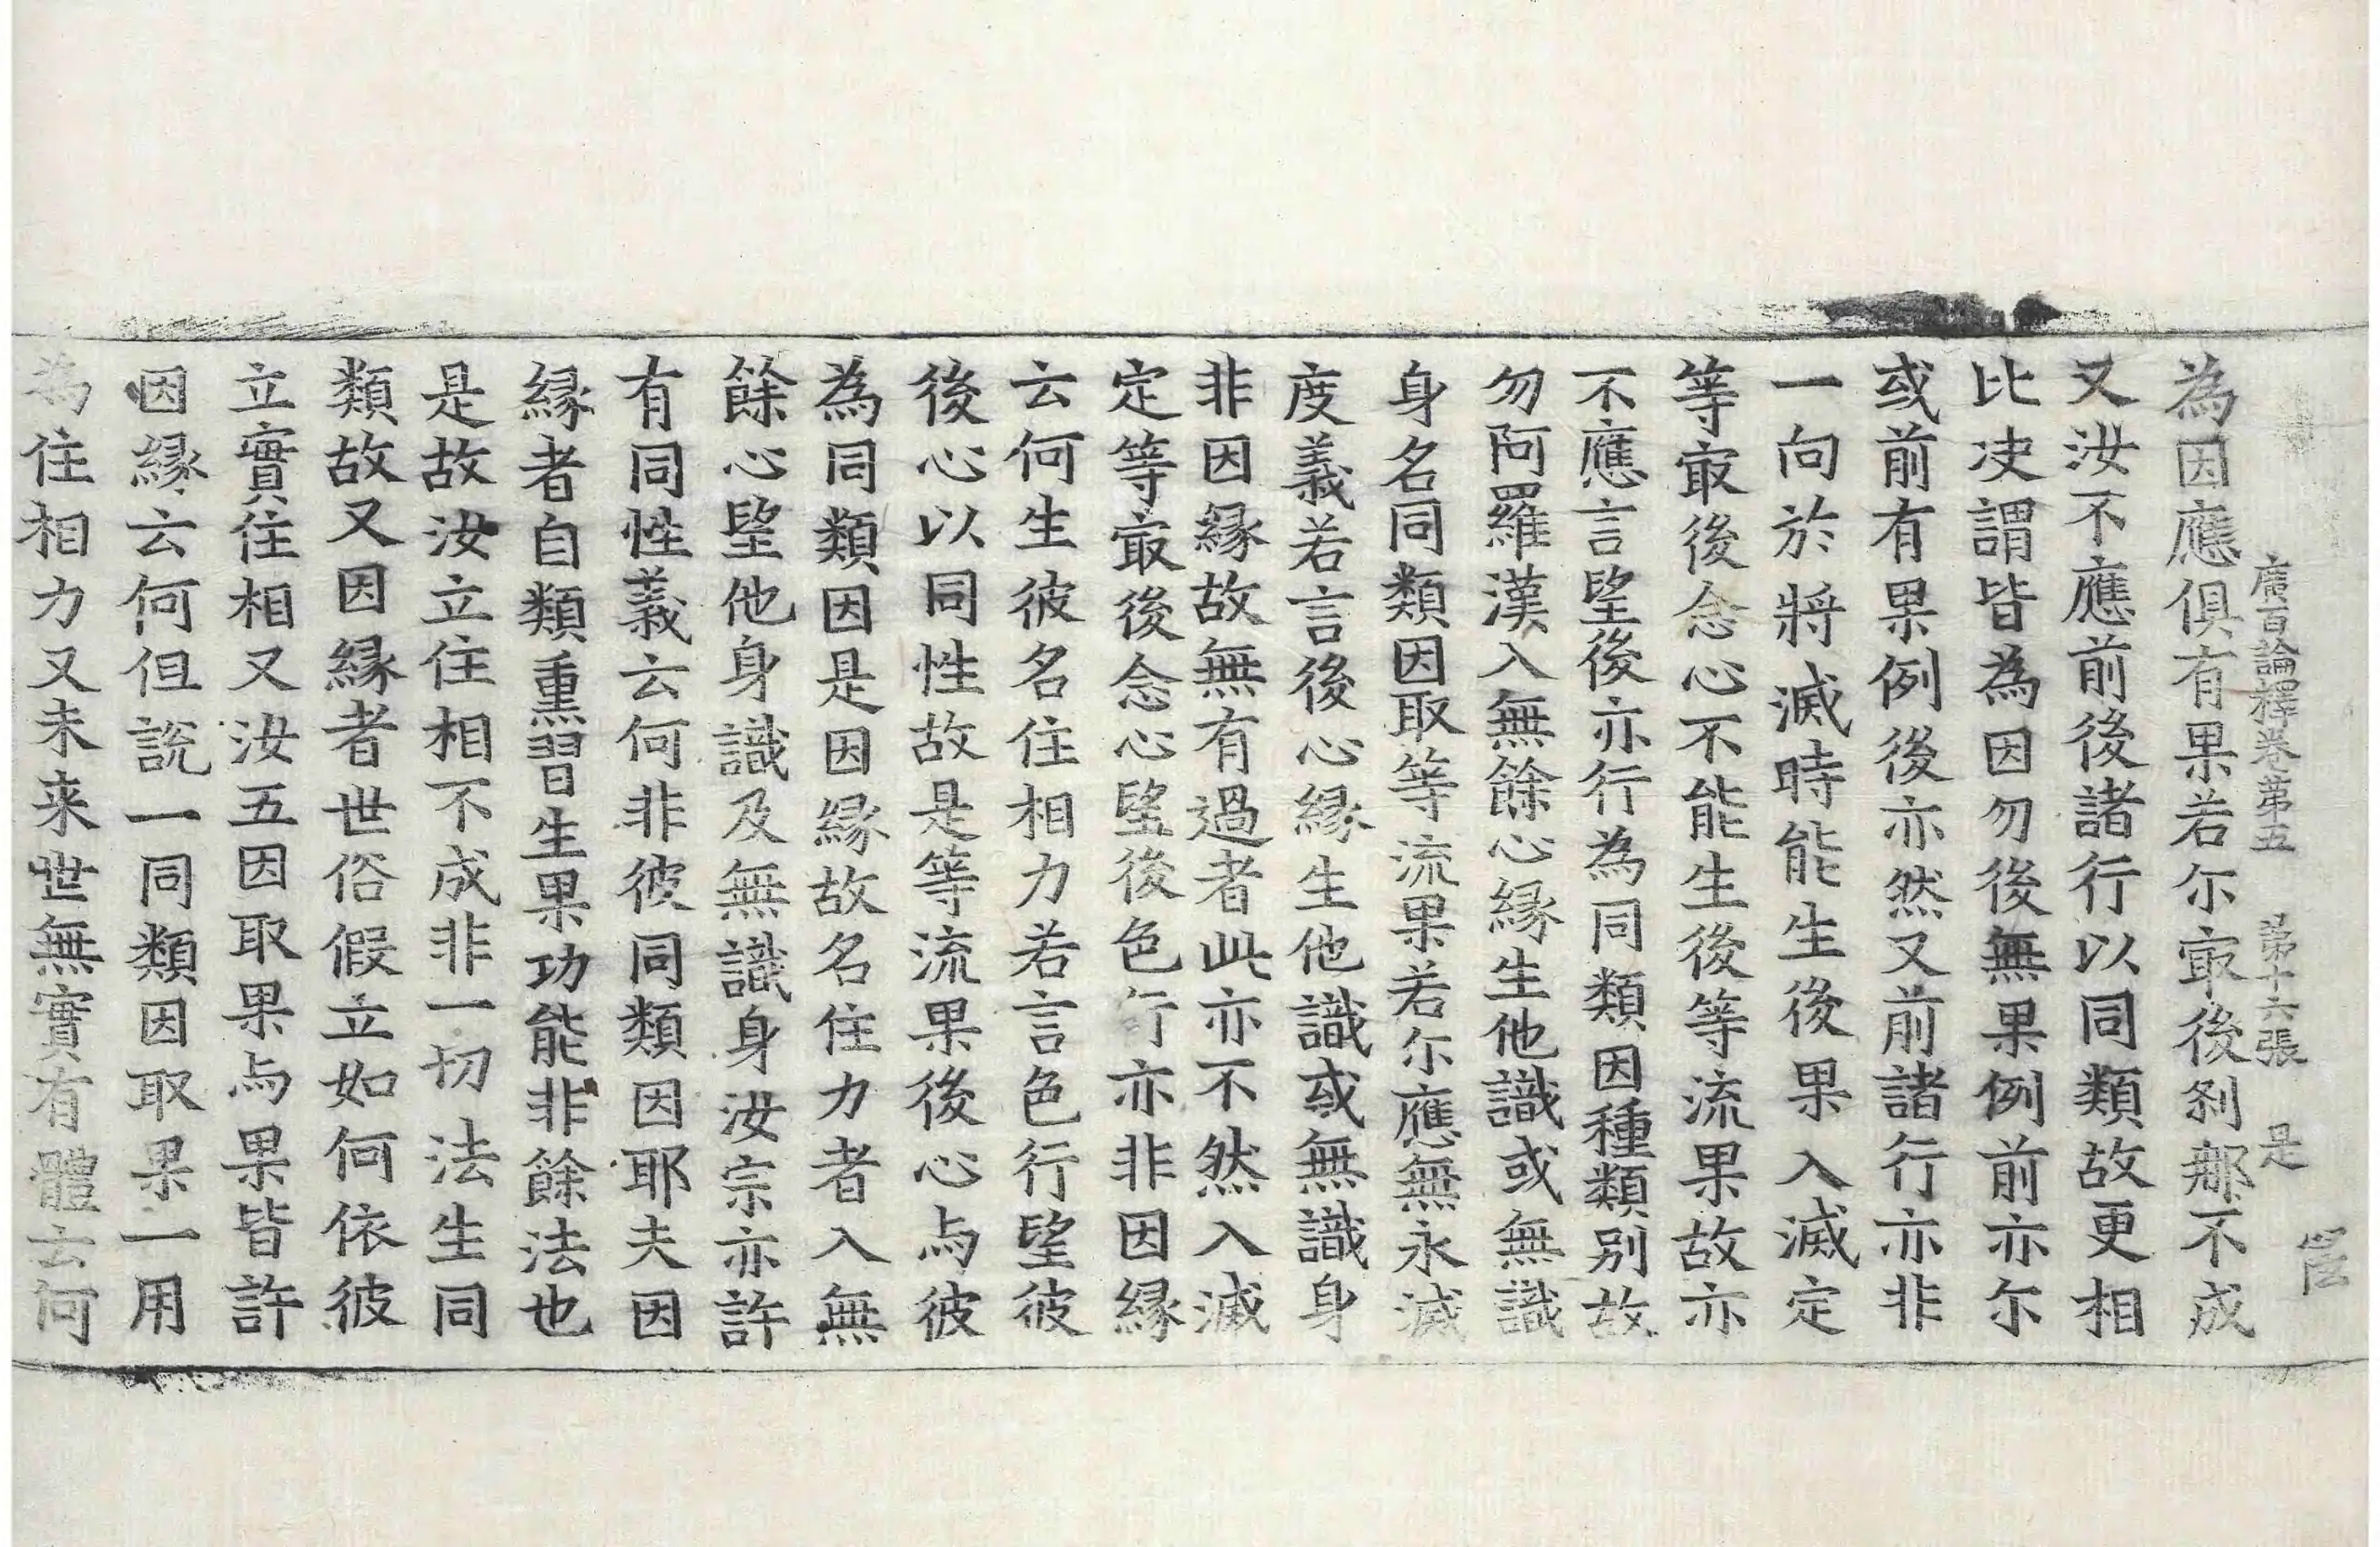 廣百論釋卷第五　第十六張　是
為因應俱有果若尒㝡後刹那不成
又汝不應前後諸行以同類故更相
比决謂皆為因勿後無果例前亦尒
或前有果例後亦然又前諸行亦非
一向於將滅時能生後果入滅定
等㝡後念心不能生後等流果故亦
不應言望後亦行為同類因種類別故
勿阿羅漢入無餘心縁生他識或無識
身名同類因取等流果若尒應無永滅
度義若言後心縁生他識或無識身
非因縁故無有過者此亦不然入滅
定等㝡後念心望後色行亦非因縁
云何生彼名住相力若言色行望彼
後心以同性故是等流果後心与彼
為同類因是因縁故名住力者入無
餘心望他身識及無識身汝宗亦許
有同性義云何非彼同類因耶夫因
縁者自類熏習生果功能非餘法也
是故汝立住相不成非一切法生同
類故又因縁者世俗假立如何依彼
立實住相又汝五因取果与果皆許
因縁云何但說一同類因取果一用
為住相力又未来世無實有體云何